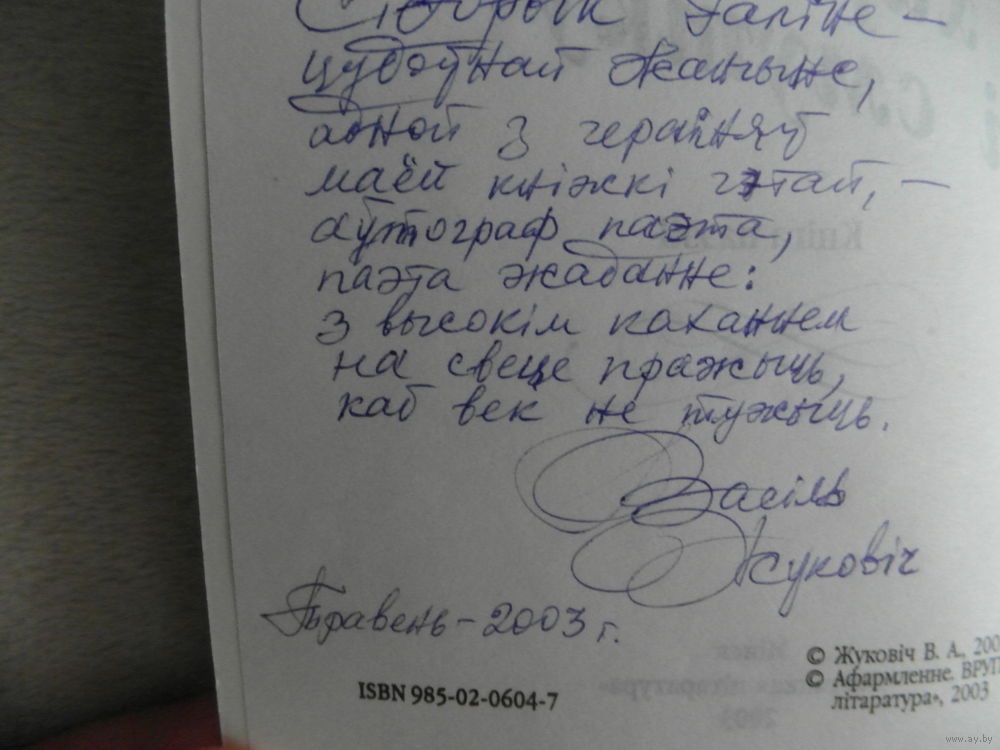 Галіне —
цудоўнай жанчыне,
адной з гераіняў
маёй кніжкі гэтай, —
аўтограф паэта,
паэта жаданне:
з высокім каханнем
на свеце пражыць,
каб век не тужыць.
Васіль
Жуковіч
Травень – 2003 г.
© Жуковіч В. А., 200
© Афармленне. ВРУП
літаратура», 2003
ISBN 985-02-0604-7
www.ay.by